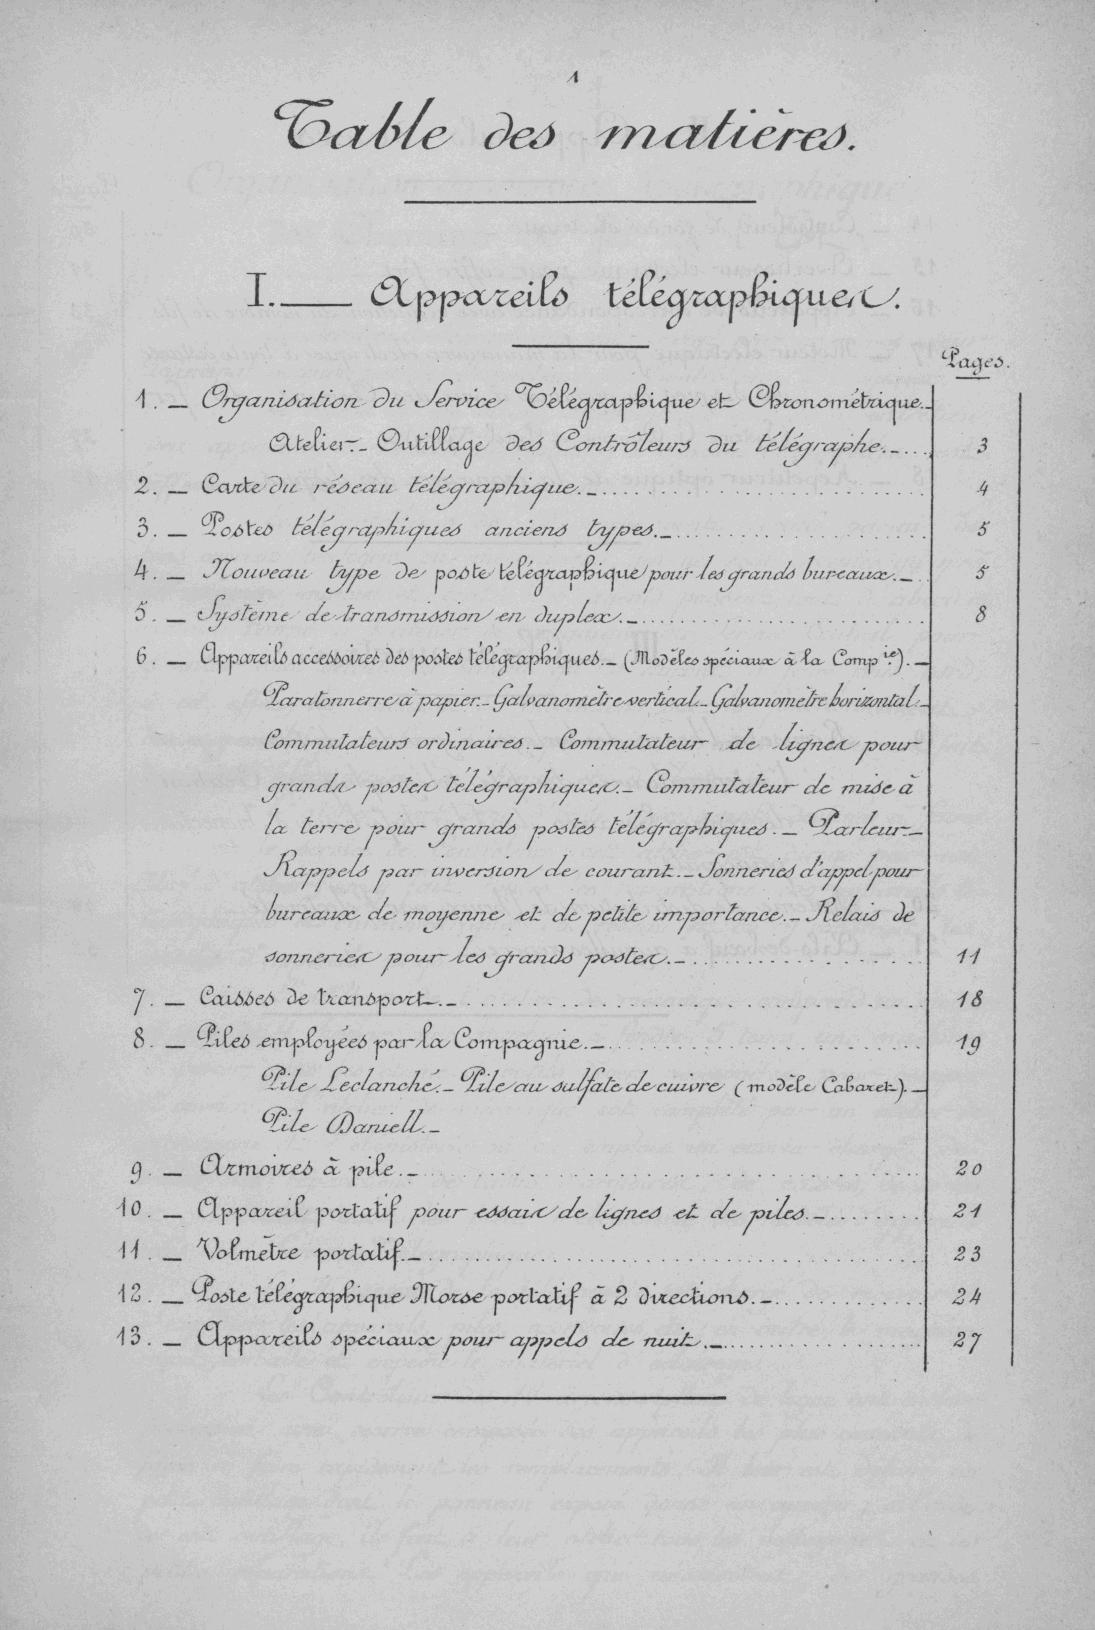 1
Table des matières.
I. — Appareils télégraphiques.
Pages.
1. — Organisation du Service Télégraphique et Chronométrique. —
Atelier. — Outillage des Contrôleurs du télégraphe. — ... 3
2. — Carte du réseau télégraphique. — ... 4
3. — Postes télégraphiques anciens types. — ... 5
4. — Nouveau type de poste télégraphique pour les grands bureaux. — .. 5
5. — Système de transmission en duplex. — ... 8
6. — Appareils accessoires des postes télégraphiques. — (Modèles spéciaux à la Comp ie). —
Paratonnerre à papier. — Galvanomètre vertical. — Galvanomètre horizontal. —
Commutateurs ordinaires. — Commutateur de lignes pour
grands postes télégraphiques. — Commutateur de mise à
la terre pour grands postes télégraphiques. — Parleur. —
Rappels par inversion de courant. — Sonneries d'appel pour
bureaux de moyenne et de petite importance. — Relais de
sonneries pour les grands postes. — ... 11
7. — Caisses de transport. — ... 18
8. — Piles employées par la Compagnie. — ... 19
Pile Leclanché. — Pile au sulfate de cuivre (modèle Cabaret). —
Pile Daniell. —
9. — Armoires à pile. — ... 20
10. — Appareil portatif pour essais de lignes et de piles. — ... 21
11. — Volmètre portatif. — ... 23
12. — Poste télégraphique Morse portatif à 2 directions. — ... 24
13. — Appareils spéciaux pour appels de nuit. — ... 27